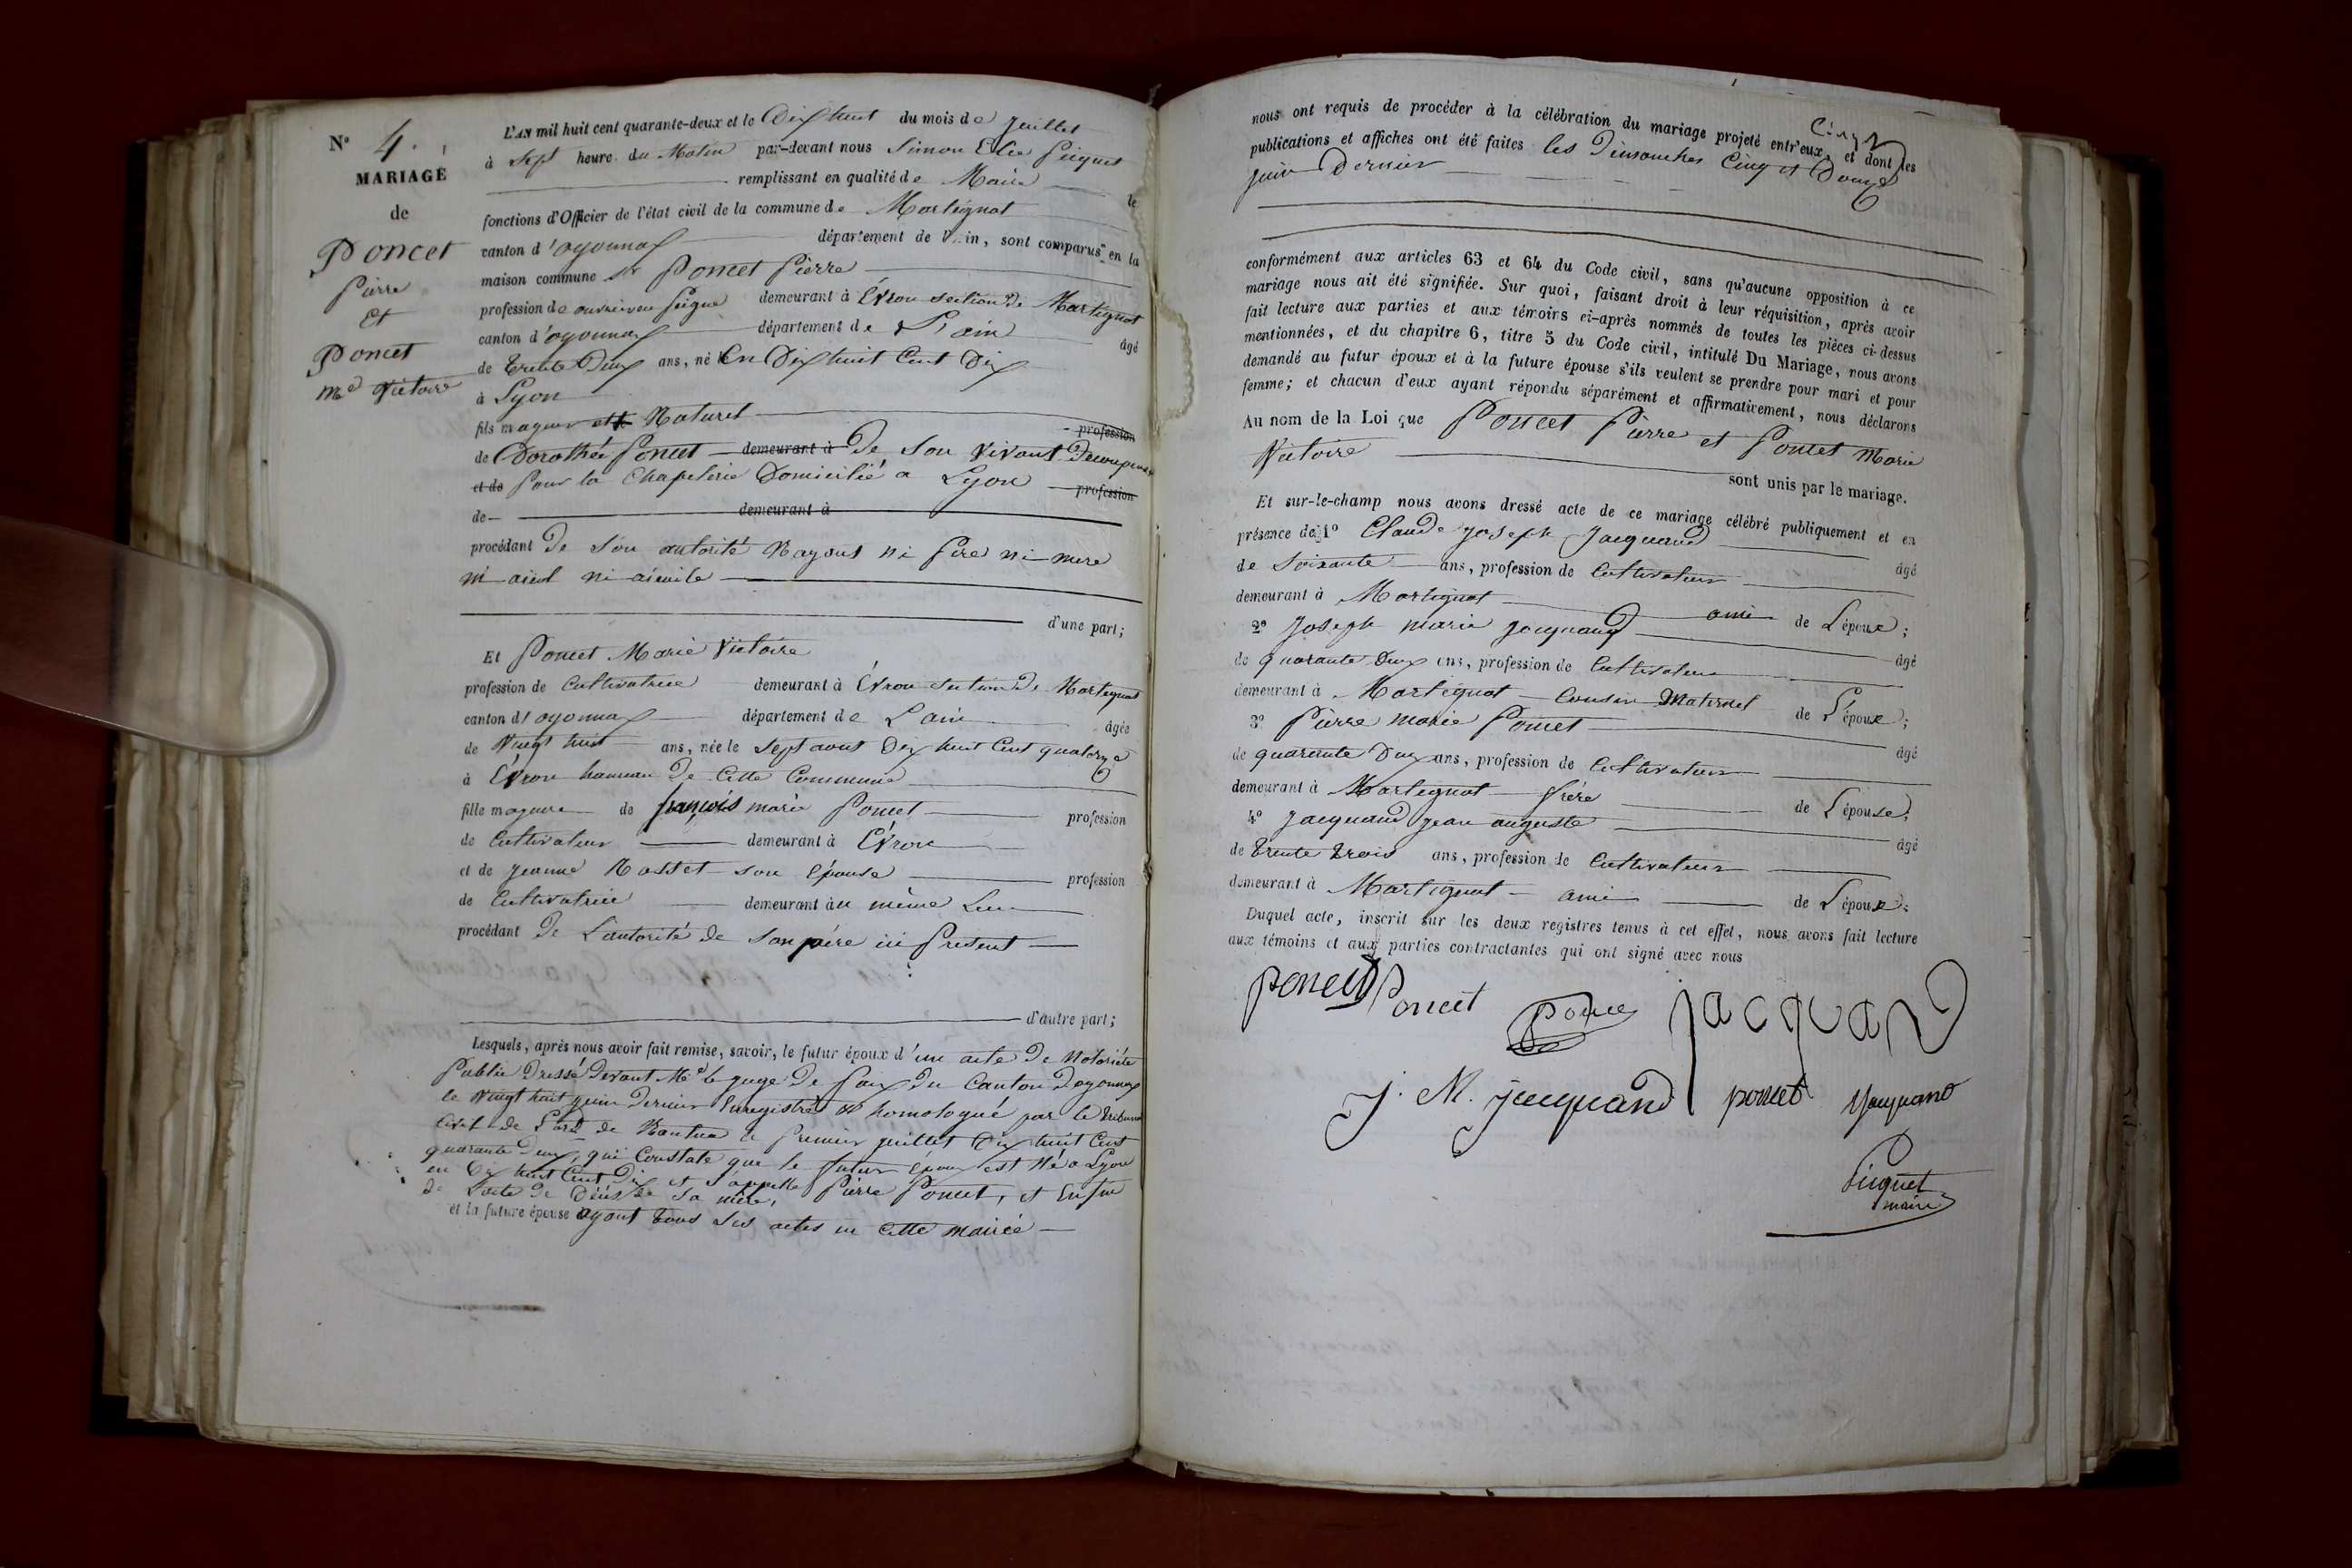 N° 4.
MARIAGE
de
Poncet
Pierre
et
Poncet
Mie Victoire
L'AN mil huit cent quarante-deux et le Dix huit du mois de juillet
à Sept heure du Matin par-devant nous Simon Elie Piquet
remplissant en qualité de Maire le
fonctions d'Officier de l'état civil de la commune de Martignat
canton d'oyonnax département de l'Ain, sont comparus en la
maison commune sr Poncet Pierre
profession de ouvrier en peigne demeurant à Évron section de Martignat
canton d'oyonnax département de L'ain âgé
de trente Deux ans, né En Dix huit Cent Dix
à Lyon
fils mageur et Naturel profession
de Dorothée Poncet demeurant à De Son Vivant Decoupeuse
et de Pour la Chapelerie Domicilié a Lyon profession
de demeurant à
procédant De Son autorité Nayant ni Père ni mere
ni aieul ni aieuile
d'une part;
Et Poncet Marie Victoire
profession de Cultivatrice demeurant à Évron section De Martignat
canton d'oyonnax département de L'ain âgée
de Vingt huit ans, née le Sept aout Dix huit Cent quatorze
à Évron hameau De Cette Commune
fille mageure de françois marie Poncet profession
de Cultivateur demeurant à Évron
et de jeanne Rosset son épouse profession
de Cultivatrice demeurant au même Lieu
procédant De L'autorité de son père ici Present
d'autre part;
Lesquels, après nous avoir fait remise, savoir, le futur époux d'un acte De Notoriété
Public Dressé Devant Mr le juge De Paix du Canton Doyonnax
le Vingt huit juin Dernier Enregistré et homologué par le tribunal
Civil de L'ard de Nantua le Premier juillet Dix huit Cent
quarante Deux, qui Constate que le futur époux est Né a Lyon
en Dix huit Cent Dix et s'appelle Pierre Poncet, et Enfin
de L'acte De Décès de Sa mère,
et la future épouse ayant tous Ses actes en Cette Mairie
nous ont requis de procéder à la célébration du mariage projeté entr'eux, et dont les
publications et affiches ont été faites les Dimanches Cinq et Douze
juin Dernier
conformément aux articles 63 et 64 du Code civil, sans qu'aucune opposition à ce
mariage nous ait été signifiée. Sur quoi, faisant droit à leur réquisition, après avoir
fait lecture aux parties et aux témoins ci-après nommés de toutes les pièces ci-dessus
mentionnées, et du chapitre 6, titre 5 du Code civil, intitulé Du Mariage, nous avons
demandé au futur époux et à la future épouse s'ils veulent se prendre pour mari et pour
femme; et chacun d'eux ayant répondu séparément et affirmativement, nous déclarons
Au nom de la Loi que Poncet Pierre et Poncet Marie
Victoire
sont unis par le mariage.
Et sur-le-champ nous avons dressé acte de ce mariage célébré publiquement et en
présence de 1° Claude joseph Jacquand âgé
de Soixante ans, profession de Cultivateur
demeurant à Martignat ami de L'époux;
2° Joseph marie jacquand âgé
de quarante Deux ans, profession de Cultivateur
demeurant à Martignat Cousin Maternel de L'époux;
3° Pierre marie Poncet âgé
de quarante Deux ans, profession de Cultivateur
demeurant à Martignat frère de L'épouse;
4° Jacquand jean auguste âgé
de trente trois ans, profession de Cultivateur
demeurant à Martignat ami de L'époux;
Duquel acte, inscrit sur les deux registres tenus à cet effet, nous avons fait lecture
aux témoins et aux parties contractantes qui ont signé avec nous
poncet Poncet Ponce jacquand
J. M. jacquand poncet jacquand
Piquet
maire